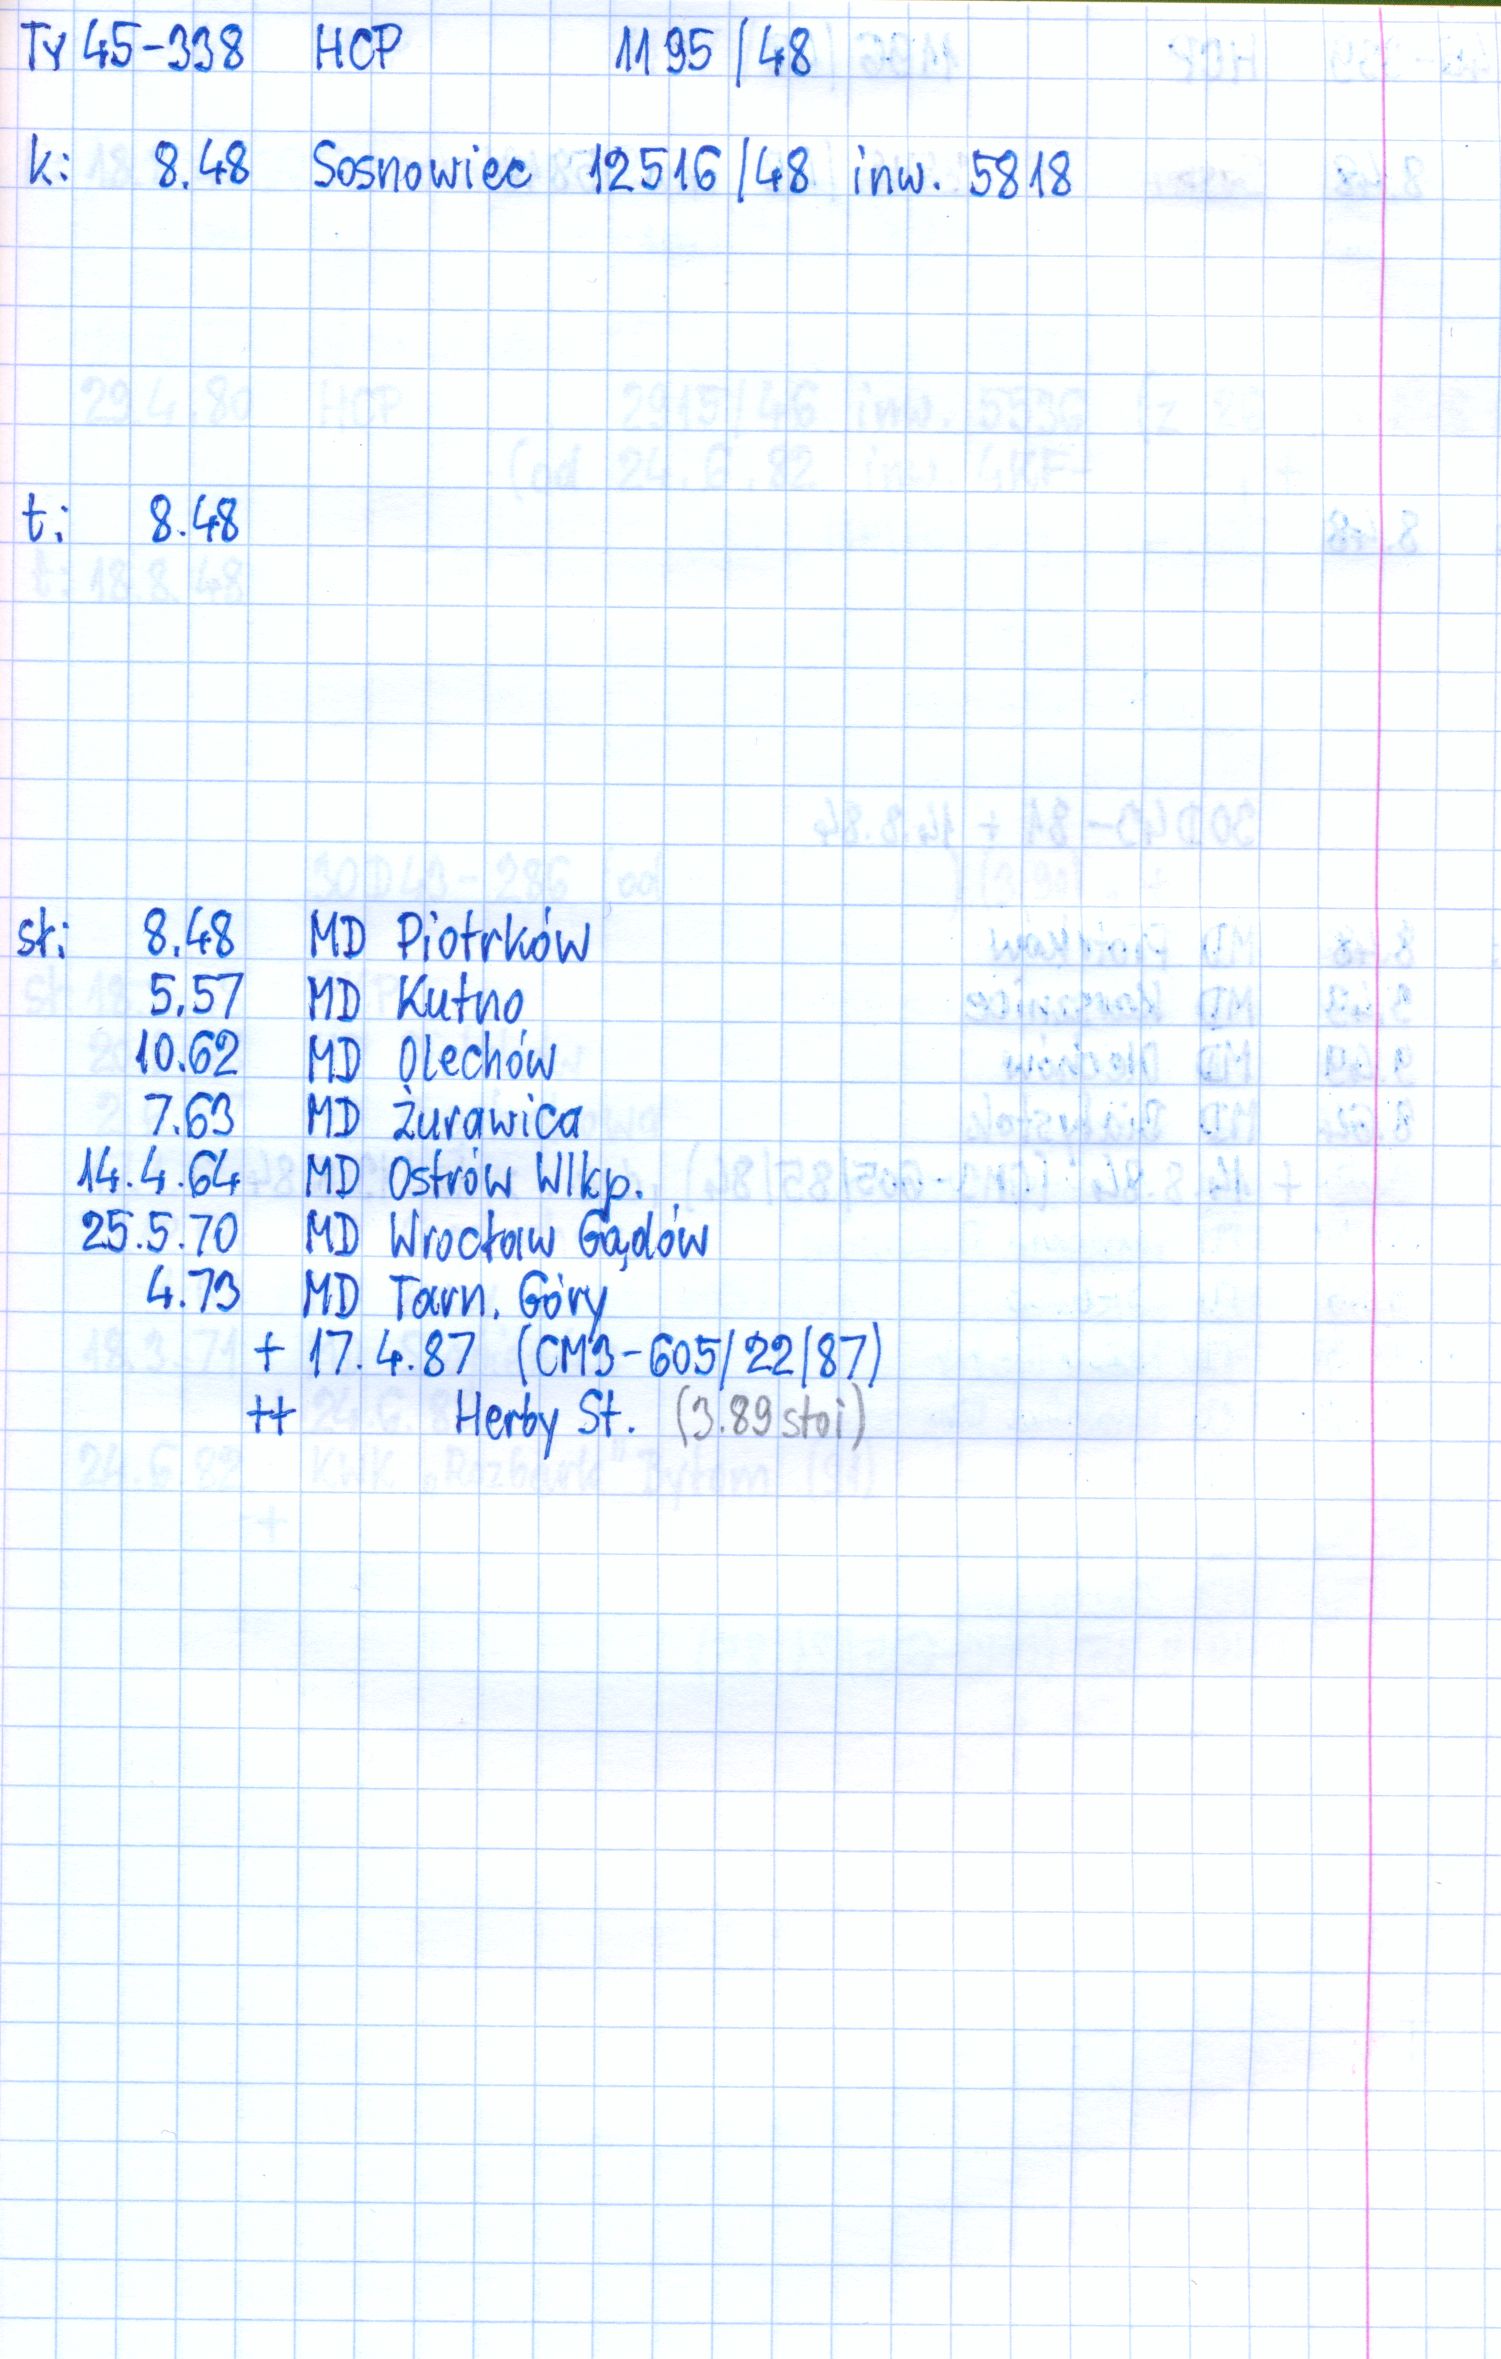 Ty 45-338 HCP 1195/48
k: 8.48 Sosnowiec 12516/48 inw. 5818
t: 8.48
st: 8.48 MD Piotrków
5.57 MD Kutno
10.62 MD Olechów
7.63 MD Żurawica
14.4.64 MD Ostrów Wlkp.
25.5.70 MD Wrocław Gądów
4.73 MD Tarn. Góry
+ 17.4.87 (CM3-605/22/87)
++ Herby St. (3.89 stoi)